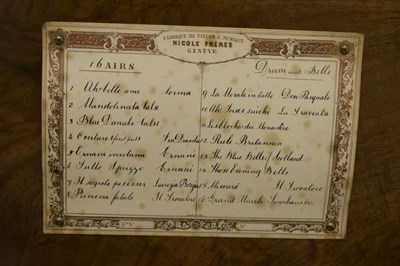 FABRIQUE DE PIÈCES À MUSIQUE
NICOLE FRÈRES
GENÈVE
16 AIRS
Drum and Bells
1 Ah bello ame Norma
2 Mandolinata Vals
3 Blue Danube Vals
4 Fra Diavolo
5 Ernani involami Ernani
6 Tutto Ernani
7 Il segreto per esser Lucrezia Borgia
8 fatale Il Trovatore
9 La Morale in tutto Don Pasquale
10 La Traviata
11 Les cloches du Monastère
12 Rule Britannia
13 The Blue Bells of Scotland
14 Those Evening Bells
15 Miserere Il Trovatore
16 Grand March Tannhauser